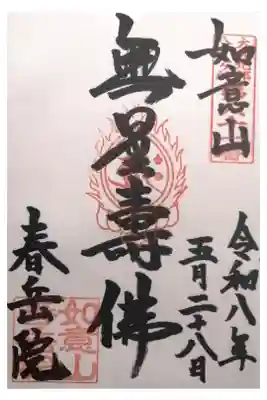 令和八年
五月二十八日
如意山
無量壽佛
春岳院
如意山